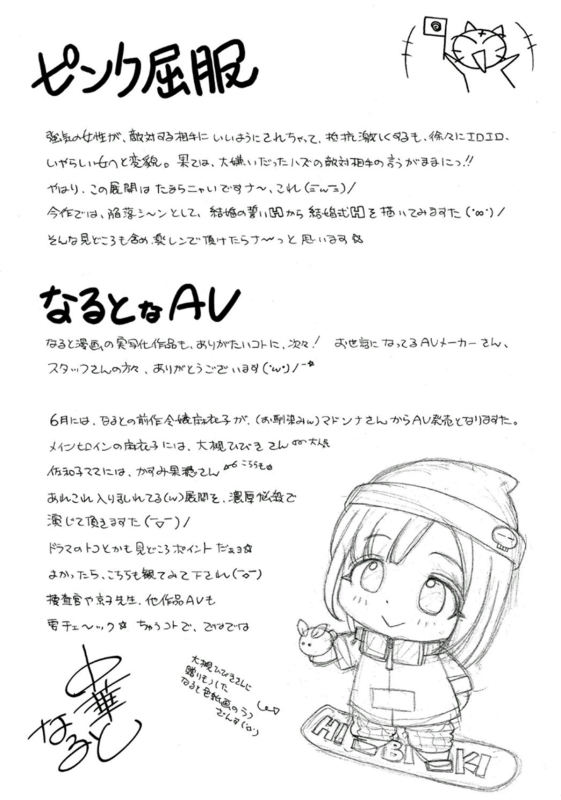 ピンク屈服
強気の女性が、敵対する相手にいいようにされちゃって、抵抗激しくするも、徐々にエロエロ、
いやらしい女へと変貌。果ては、大嫌いだったハズの敵対相手の言うがままにっ!!
やはり、この展開はたまらニャいですナ〜、これ(=ω=)/
今作では、陥落シ〜ンとして、結婚の誓いHから結婚式Hを描いてみますた(・∞・)/
そんな見どころも含め、楽しンで頂けたらナ〜っと思います☆
なるとなAV
なると漫画の実写化作品も、ありがたいコトに、次々! お世話になってるAVメーカーさん、
スタッフさんの方々、ありがとうございます(・ω・)/
6月には、なるとの前作令嬢麻衣子が、(お馴染みw)マドンナさんからAV発売となりますた。
メインヒロインの麻衣子には、大槻ひびきさん
佐和子ママには、かすみ果穂さん
あれこれ入りまじれてる(w)展開を、濃厚伝奇で
演じて頂きますた(￣▽￣)/
ドラマのトコとかも見どころポイントだぉヨ☆
よかったら、こちらも観てみて下され(￣ο￣)
捜査官や京子先生、他作品AVも
要チェ〜ック☆ ちゅうコトで、ではでは
中華
なると
大槻ひびきさんに
贈りもうした
なると色紙画のラフ
でんす(・ο・)
HIBIKI